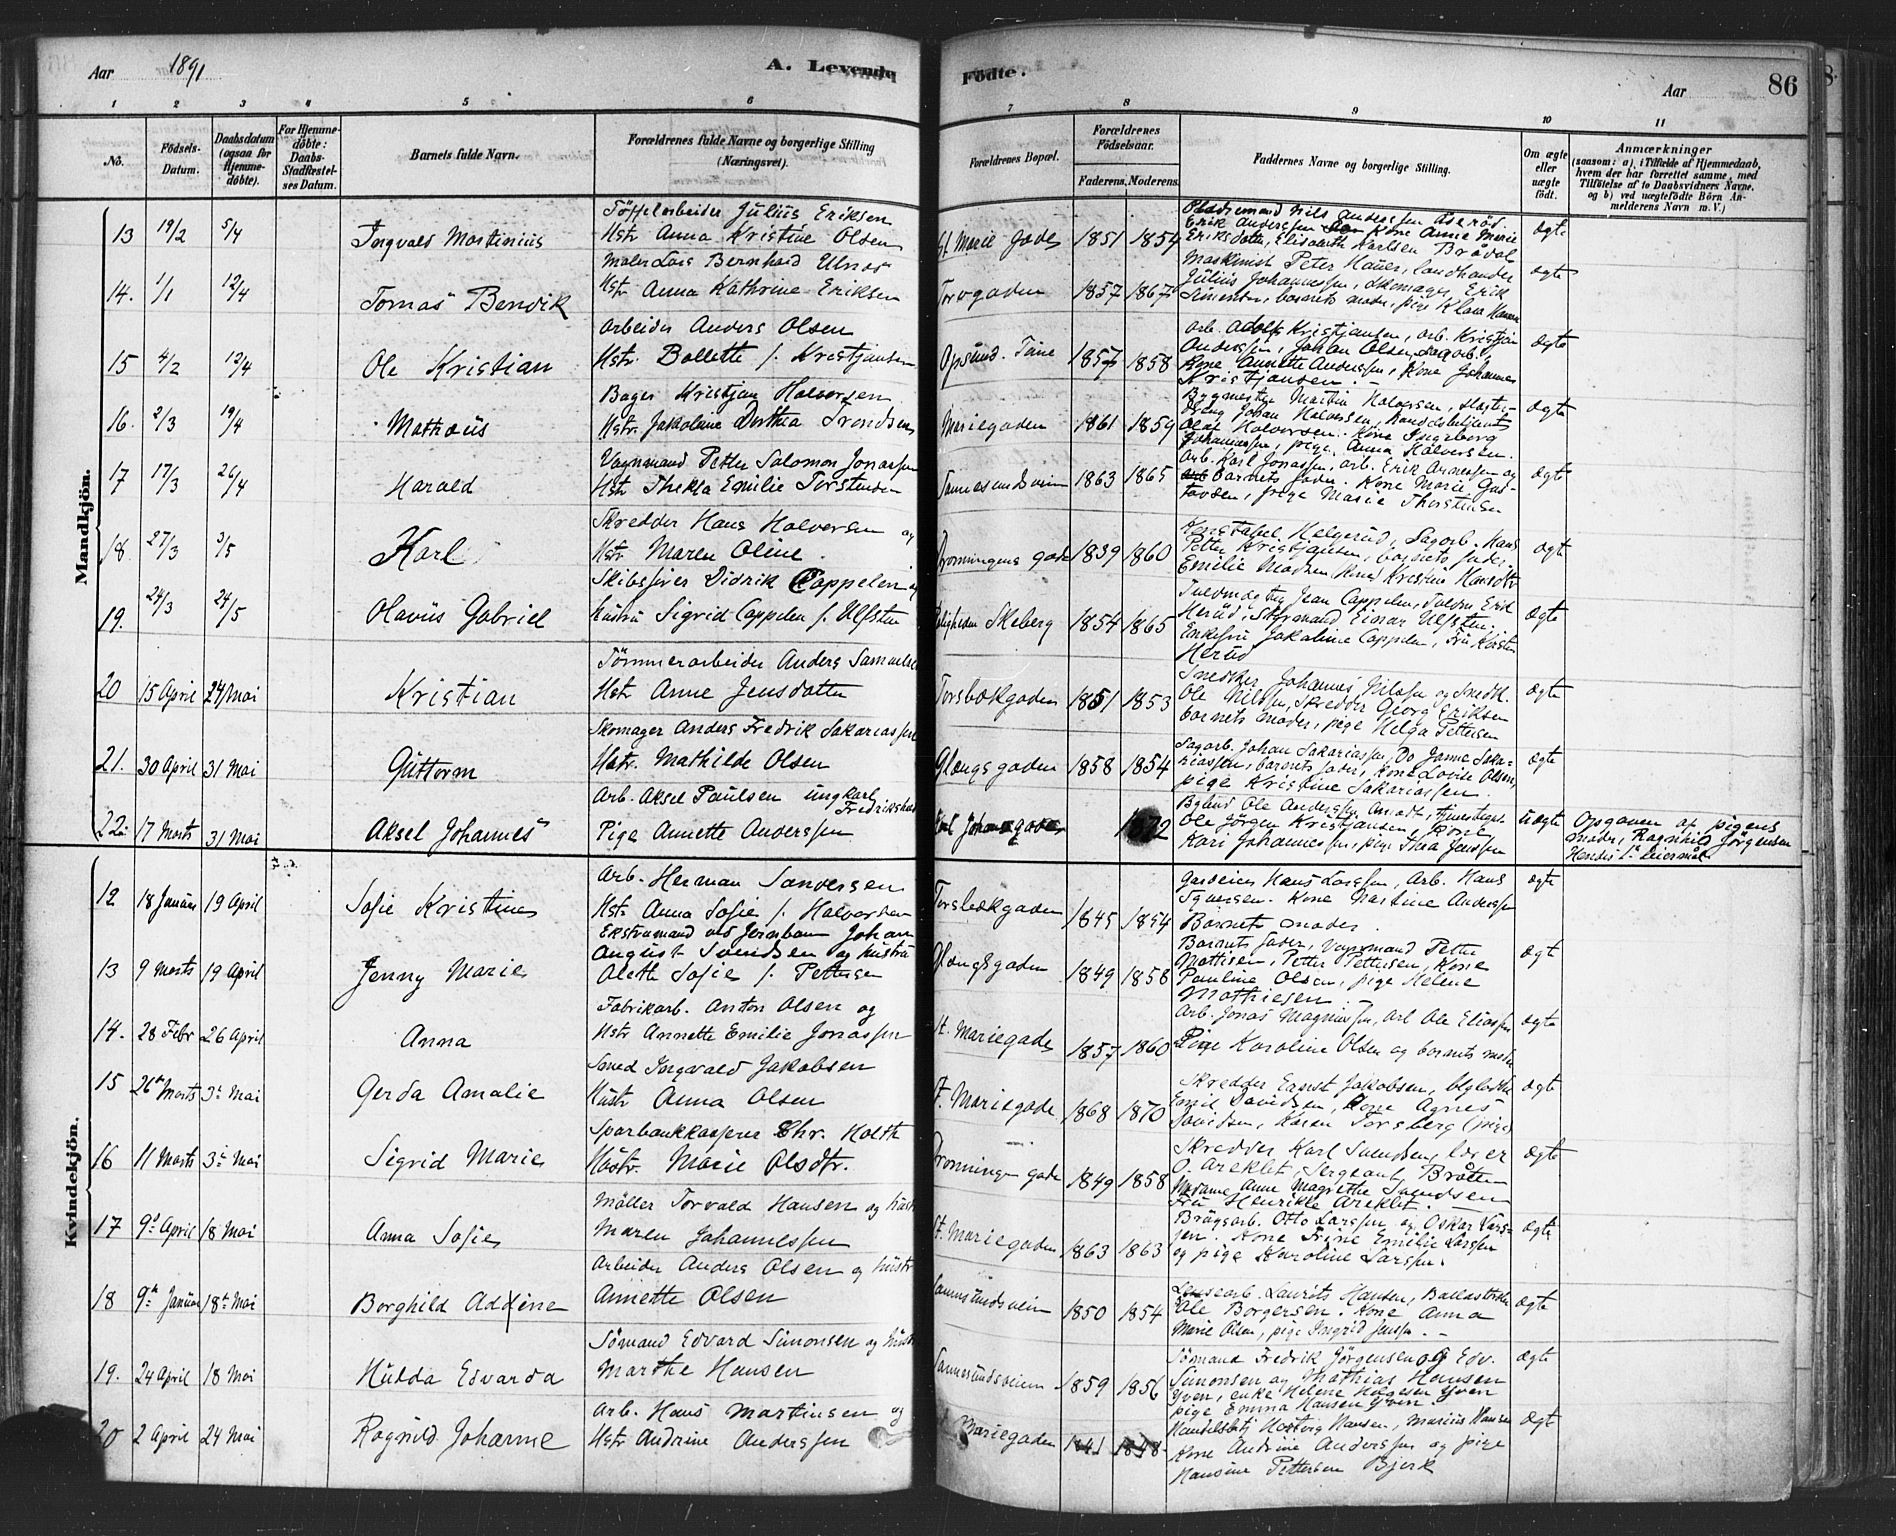 Aar 1891 A. Levende Fødte. Aar 86
1 2 3 4 5 6 7 8 9 10 11
No.
Födsels-Datum.
Daabsdatum (ogsaa for Hjemmedöbte).
For Hjemmedöbte: Daabs-Stadfæstelses Datum.
Barnets fulde Navn.
Forældrenes fulde Navne og borgerlige Stilling (Næringsvei).
Forældrenes Bopæl.
Forældrenes Födselsaar.
Faderens. Moderens.
Faddernes Navne og borgerlige Stilling.
Om ægte eller uægte födt.
Anmærkninger
(saasom: a) i Tilfælde af Hjemmedaab, hvem der har forrettet samme, med Tilföielse af to Daabsvidners Navne, og b) ved uægtefödte Börn Anmelderens Navn m. V.)
Mandkjön.
13 19/2 5/4 Ingvald Martinius
Töffelarbeider Julius Eriksen
Hstr Anna Kristine Olsen
St Marie Gade 1851 1854
Nils Anderssen
Erik Anderssen Kone Anne Marie
Eriksdatter, Elisabeth Karlsen
ægte
14. 1/1 12/4 Tomas Bendik
Maler Lars Bernhard Ulnæs
Hstr Anna Kathrine Eriksen
Torvgaden 1857 1867
Maskinist Peter Hauer, Landhandler
Julius Johannessen, Skomager Erik
Simensen, barnets moder, pige Klara Hansen
ægte
15 4/2 12/4 Ole Kristian
Arbeider Anders Olsen
Hstr. Bollette f. Kristjansen
Opsund. Tune 1857 1858
Arb. Adolf Kristjansen, arb. Kristjan
Anderssen, Johan Olsen, Sagarb.,
Kone Annette Anderssen, Kone Johannes
Kristjansen. -
ægte
16. 2/3 19/4 Mathæus
Bager Kristjan Halvorsen
Hstr. Jakobine Dorthea Trondsen
Mariegaden 1861 1859
Bygmester Martin Halversen,
Johan Halversen, Handelsbetjent
Olaf Halversen. Kone Ingeborg
Johannessen, pige Anna Halversen.
ægte
17 17/3 26/4 Harald
Vognmand Petter Salomon Jonassen
Hstr Thekla Emilie Torstensen
Sannesundsveien 1863 1865
Arb. Karl Jonassen, arb. Erik Arnesen og
Barnets fader. Kone Marie Gus-
tavsen, pige Marie Thorstensen
ægte
18. 27/3 3/5 Karl
Skredder Hans Halvorsen og
Hstr. Maren Oline.
Dronningens gade 1839 1860
Konstabel Helgerud, Sagarb. Hans
Petter Kristjansen, barnets fader.
Emilie Madsen (Kone) Kristine Hansdtr
ægt
19. 24/3 24/5 Olavus Gabriel
Skibsförer Didrik Cappelen og
hustru Sigrid Cappelen f. Ulfsten
Skeberg 1854 1865
Jean Cappelen, Toldm Erik
Herud, Styrmand Einar Ulfsten.
Enkefru Jakobine Cappelen, Fru Kirsten
Herud
ægte
20 15 April 24 Mai Kristian
Tömmerarbeider Anders Samuelsen
Hstr Anne Jensdatter
Torsbækgaden 1851 1853
Snedker Johannes Nilssen og Snedk.
Ole Nilssen, Skredder Georg Eriksen
barnets moder, pige Helga Pettersen
ægte
21. 30 April 31 Mai Guttorm
Skomager Anders Fredrik Sakariassen
Hstr. Mathilde Olsen
Glængsgaden 1858 1854
Sagarb. Johan Sakariassen, Do Janne Saka-
riassen, barnets fader, Kone Lovise Olsen,
pige Kristine Sakariassen.
ægte
22. 17 Marts 31 Mai Aksel Johannes
Arb. Aksel Paulsen ungkarl
Fredrikshald
Pige Annette Anderssen
Karl Johansgade 1872
Ole Anderssen
Ole Jörgen Kristjansen, Kone
Kari Johannessen, pige Thea Jenssen
uægte
Opgaven af pigens
moder, Ragnhild Jörgensen
Hendes 1ste Leiermål
Kvindekjön.
12 18 Januar 19 April Sofie Kristine
Arb. Herman Sandersen
Hstr Anna Sofie f. Halvorsen
Torsbækgaden 1845 1854
Gardeier Hans Larssen, Arb. Hans
Syversen. Kone Martine Anderssen
Barnets moder.
ægte
13 9 Marts 19 April Jenny Marie
Ekstramand ved Jernbanen Johan
August Svendsen og hustru
Aleth Sofie f. Pettersen
Glængsgaden 1849 1858
Barnets fader, Vognmand Petter
Mattisen, Petter Pettersen, Kone
Pauline Olsen, pige Helene
Mathiesen
ægt
14. 28 Febr 26 April Anna
Fabrikarb. Anton Olsen og
Hstr Annette Emilie Jonassen
St. Mariegade 1857 1860
Arb. Jonas Magnussen, arb Ole Eliassen
Pige Karoline Olsen og barnets moder
ægte
15 26de Marts 3die Mai Gerda Amalie
Smed Ingvald Jakobsen
Hustr Anna Olsen
St. Mariegade 1868 1870
Skredder Ernst Jakobsen,
Emil Davidsen, Kone Agnes
Davidsen, Karen Torsberg (pige)
ægte
16 11 Marts 3die Mai Sigrid Marie
Sparbankkasserer Chr. Holth
Hustr. Marie Olsdtr.
Dronningens gade 1849 1858
Skredder Karl Svendsen, lærer
O. Areklet, Sergeant Bråten
Madame Anne Magrethe Svendsen
Fru Henrikke Areklet. -
ægte
17 9de April 18 Mai Anna Sofie
Möller Torvald Hansen og hustr
Maren Johannessen
St. Mariegaden 1863 1863
Brugsarb. Otto Larssen og Oskar Lars-
sen. Kone Trine Emilie Larssen
og pige Karoline Larssen.
ægte
18 9de Januar 18de Mai Borghild Addine
Arbeider Anders Olsen og hustr
Annette Olsen
Sannesundsveien 1850 1854
Lensearb. Laurits Hansen,
Ole Borgersen. Kone Anna
Marie Olsen, pige Ingrid Jenssen. -
ægte
19. 24 April 18 Mai Hulda Edvarda
Sömand Edvard Simonsen og hustr
Marthe Hansen
Sannesundsveien 1859 1856
Sömand Fredrik Jörgensen og Edv.
Simonsen og Mathias Hansen
Yven, enke Helene Helgesen Yven
pige Emma Hansen Yven.
ægte
20 2 April 24 Mai Ragnhild Johanne
Arb. Hans Martinsen og
Hstr Andrine Anderssen
Mariegaden 1841 1848
Handelsbetj Hansen, Marius Hansen
Kone Andrine Anderssen og pige
Hansine Pettersen Bjerk
ægt